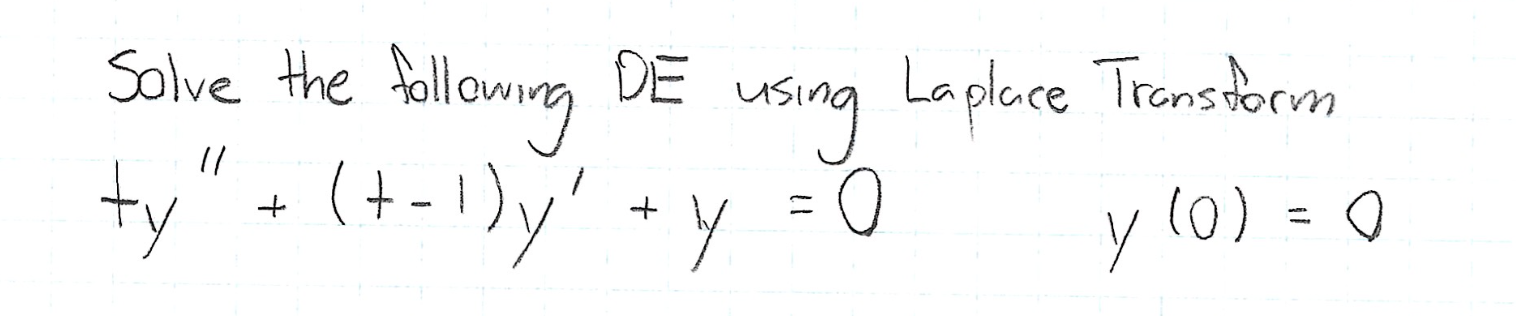 Solve the following DE using Laplace Transform
ty'' + (t-1)y' + y = 0 y(0) = 0